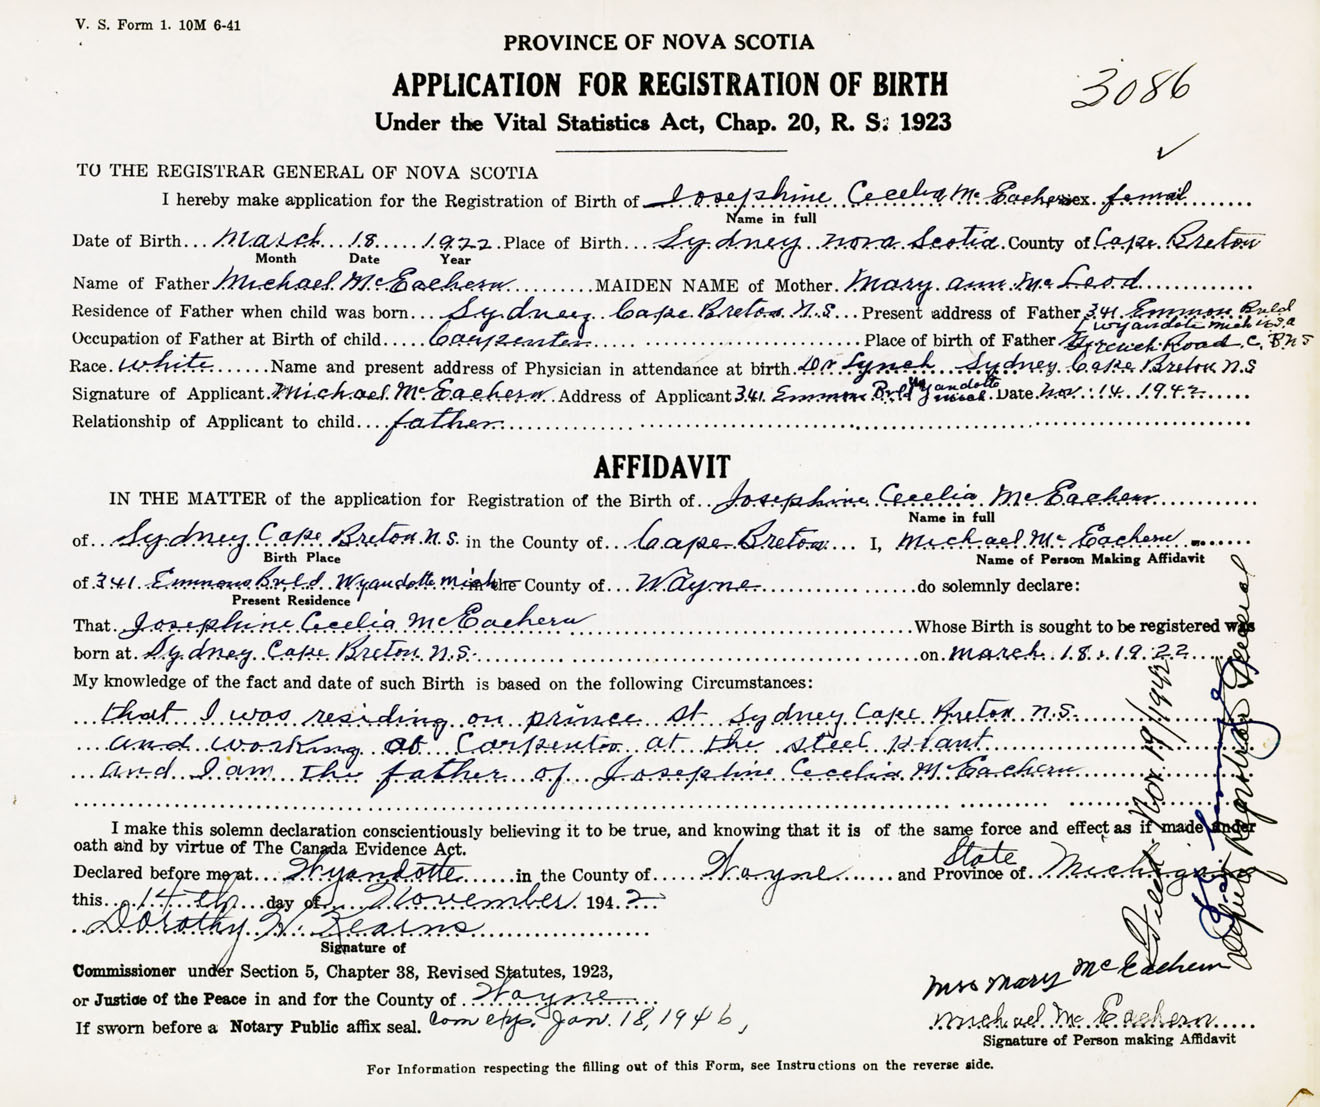 V. S. Form 1. 10M 6-41
PROVINCE OF NOVA SCOTIA
APPLICATION FOR REGISTRATION OF BIRTH
3086
Under the Vital Statistics Act, Chap. 20, R. S. 1923
TO THE REGISTRAR GENERAL OF NOVA SCOTIA
I hereby make application for the Registration of Birth of Josephine Cecelia McEachern sex femail
Name in full
Date of Birth March 18 1922 Place of Birth Sydney nova Scotia County of Cape Breton
Month Date Year
Name of Father Michael McEachern MAIDEN NAME of Mother Mary ann McLeod
Residence of Father when child was born Sydney Cape Breton N.S. Present address of Father 341 Emmons Bvld
Wyandote Mich U.S.a
Occupation of Father at Birth of child Carpenter Place of birth of Father French Road C.B.N.S
Race white Name and present address of Physician in attendance at birth Dr Lynch Sydney Cape Breton N.S
Signature of Applicant Michael McEachern Address of Applicant 341 Emmons Bvld Wyandotte mich Date Nov. 14 1942
Relationship of Applicant to child father
AFFIDAVIT
IN THE MATTER of the application for Registration of the Birth of Josephine Cecelia McEachern
Name in full
of Sydney Cape Breton N.S. in the County of Cape Breton I, Michael McEachern
Birth Place Name of Person Making Affidavit
of 341 Emmons Bvld. Wyandotte mich in the County of Wayne do solemnly declare:
Present Residence
That Josephine Cecelia McEachern Whose Birth is sought to be registered was
born at Sydney Cape Breton N.S. on march 18, 1922
My knowledge of the fact and date of such Birth is based on the following Circumstances:
that I was residing on prince st Sydney Cape Breton N.S.
and working at Carpenter at the steel Plant
and I am the father of Josephine Cecelia McEachern
I make this solemn declaration conscientiously believing it to be true, and knowing that it is of the same force and effect as if made under
oath and by virtue of The Canada Evidence Act.
Declared before me at Wyandotte in the County of Wayne and Province of State Michigan
this 14th day of November 1942
Dorothy H. Kearns
Signature of
Commissioner under Section 5, Chapter 38, Revised Statutes, 1923,
or Justice of the Peace in and for the County of Wayne
If sworn before a Notary Public affix seal. Com exp. Jan. 18, 1946,
Mrs Mary McEachern
Michael McEachern
Signature of Person making Affidavit
Filed Nov. 19/1942
Deputy Registrar General
For Information respecting the filling out of this Form, see Instructions on the reverse side.